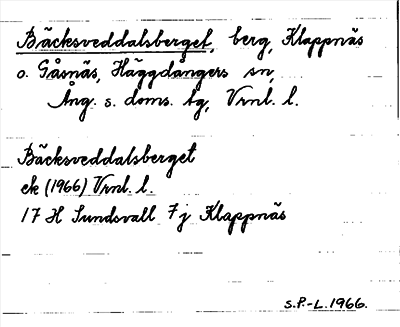 Bäcksveddalsberget, berg, Klappnäs
o. Gåsnäs, Häggdångers sn,
Ång. s. doms. tg, Vrnl. l.
Bäcksveddalsberget
ek (1966) Vrnl. l.
17 H Sundsvall 7j Klappnäs
S.P.-L. 1966.